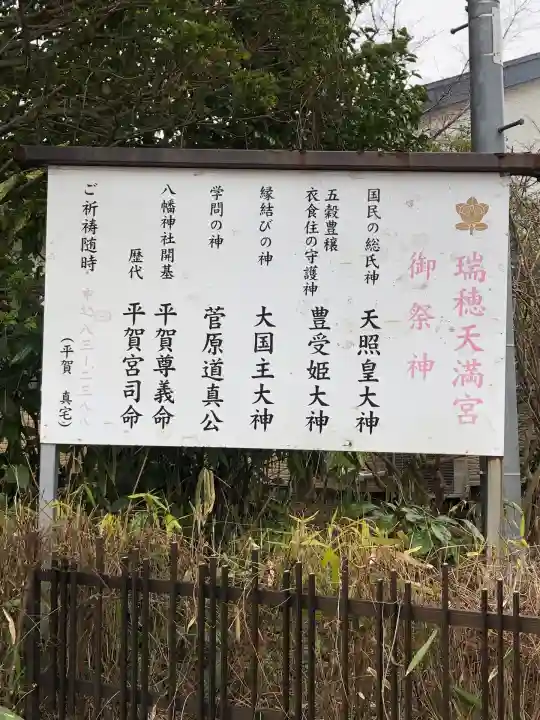 瑞穂天満宮
御祭神
国民の総氏神 天照皇大神
五穀豊穣
衣食住の守護神 豊受姫大神
縁結びの神 大国主大神
学問の神 菅原道真公
八幡神社開基 平賀尊義命
歴代 平賀宮司命
ご祈祷随時
(平賀 真宅)